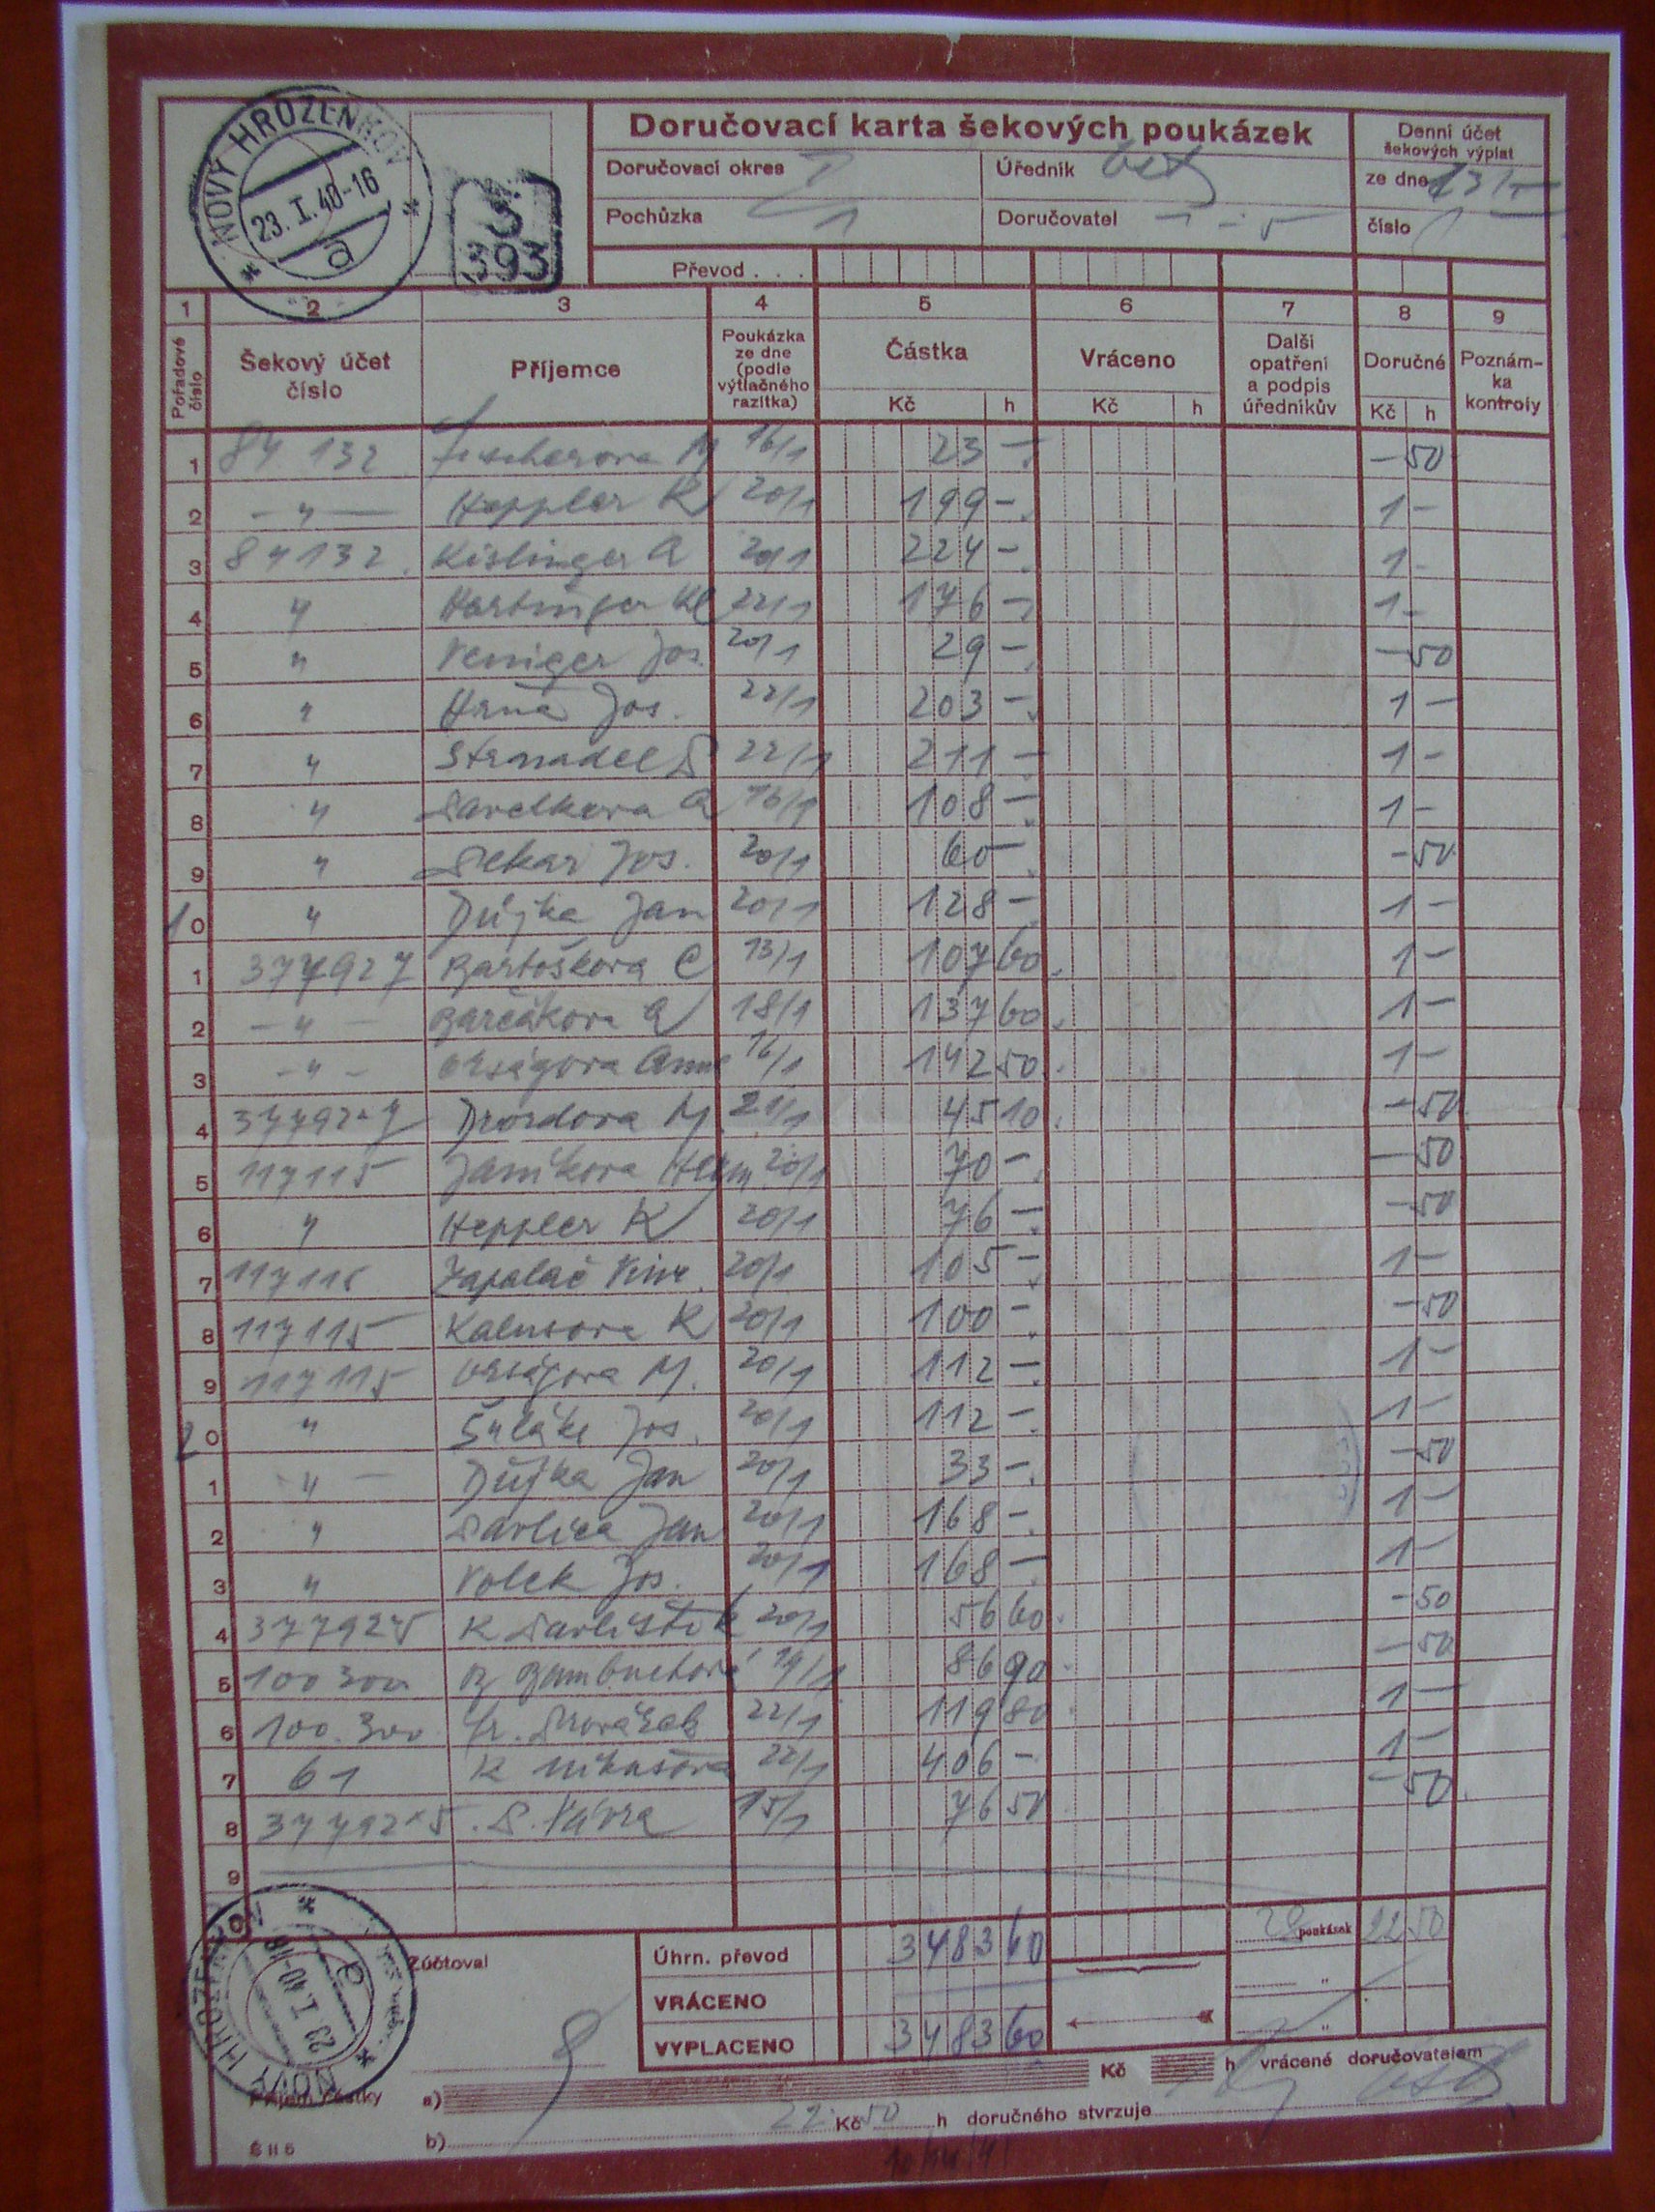 NOVÝ HROZENKOV
23. I. 40-16
a
S
393
Doručovací karta šekových poukázek
Denní účet
šekových výplat
Doručovací okres I
Úředník
ze dne 23/I
Pochůzka 1
Doručovatel
číslo 1
Převod . . .
1 2 3 4 5 6 7 8 9
Pořadové číslo
Šekový účet číslo
Příjemce
Poukázka ze dne (podle výtlačného razítka)
Částka
Vráceno
Další opatření a podpis úředníkův
Doručné
Poznám-ka kontroly
Kč h Kč h Kč h
1 84 132 Fischerova M 16/1 23 – – 50
2 – " – Heppler K 20/1 199 – 1 –
3 84132. Kislinger A 20/1 224 – 1 –
4 " 22/1 176 – 1 –
5 " Veniger Jos. 20/1 29 – – 50
6 " Jos. 22/1 203 – 1 –
7 " Strnadel 22/1 211 – 1 –
8 " A 16/1 108 – 1 –
9 " Jos. 20/1 60 – – 50
10 " Jan 20/1 128 – 1 –
1 377927 Bartoškova C 13/1 107 60 1 –
2 – " – Barčákova A 18/1 137 60 1 –
3 – " – Orságova Anna 16/1 142 50 1 –
4 377927 Drozdova M. 21/1 45 10 – 50
5 117115 Janíkova 20/1 70 – – 50
6 " Heppler K 20/1 76 – – 50
7 117115 Zapalač 20/1 105 – 1 –
8 117115 Kalusova K 20/1 100 – – 50
9 117115 Orságova M. 20/1 112 – 1 –
20 " Šulák Jos. 20/1 112 – 1 –
1 " Jan 20/1 33 – – 50
2 " Pavlica Jan 20/1 168 – 1 –
3 " Volek Jos. 20/1 168 – 1 –
4 377925 K Pavlištík 20/1 56 60 – 50
5 100300 B Bambuchová 19/1 86 90 – 50
6 100.300 Fr. 22/1 119 80 1 –
7 61 K Mikušova 22/1 406 – 1 –
8 377925. S. Vávra 15/1 76 50 – 50
9
Zúčtoval
Úhrn. převod 3483 60
28 poukázek 22 50
VRÁCENO
"
VYPLACENO 3483 60
"
NOVÝ HROZENKOV
23. I. 40-18
Příjem částky a) Kč h vrácené doručovatelem
b) 22 Kč 50 h doručného stvrzuje